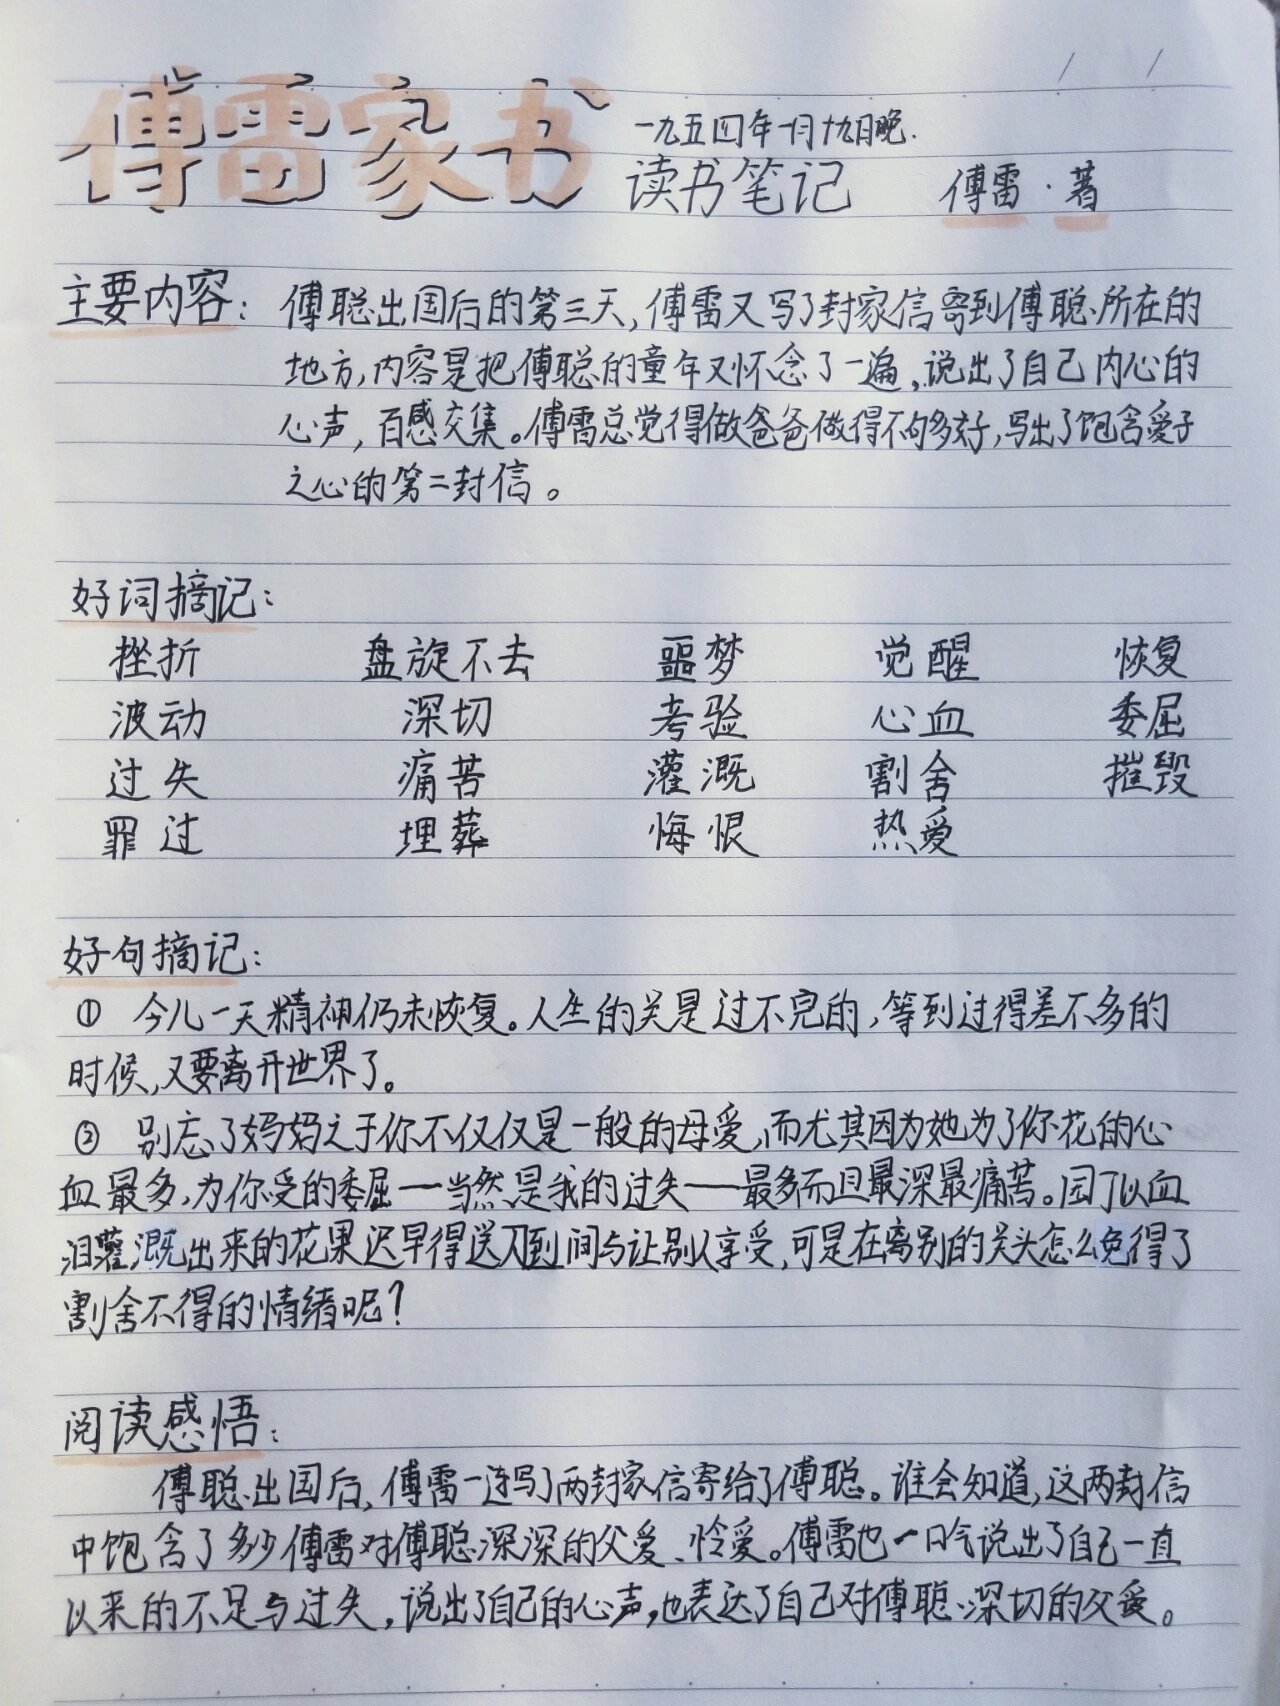 傅雷家书
一九五四年一月十九日晚.
读书笔记 傅雷·著
主要内容: 傅聪出国后的第三天,傅雷又写了封家信寄到傅聪所在的
地方,内容是把傅聪的童年又怀念了一遍,说出了自己内心的
心声,百感交集。傅雷总觉得做爸爸做得不够多好,写出了饱含爱子
之心的第二封信。
好词摘记:
挫折 盘旋不去 噩梦 觉醒 恢复
波动 深切 考验 心血 委屈
过失 痛苦 灌溉 割舍 摧毁
罪过 埋葬 悔恨 热爱
好句摘记:
① 今儿一天精神仍未恢复。人生的关是过不完的,等到过得差不多的
时候,又要离开世界了。
② 别忘了妈妈之于你不仅仅是一般的母爱,而尤其因为她为了你花的心
血最多,为你受的委屈——当然是我的过失——最多而且最深最痛苦。园丁以血
泪灌溉出来的花果迟早得送到人间与让别人享受,可是在离别的关头怎么免得了
割舍不得的情绪呢?
阅读感悟:
傅聪出国后,傅雷一连写了两封家信寄给了傅聪。谁会知道,这两封信
中饱含了多少傅雷对傅聪深深的父爱、怜爱。傅雷也一口气说出了自己一直
以来的不足与过失,说出了自己的心声,也表达了自己对傅聪深切的父爱。